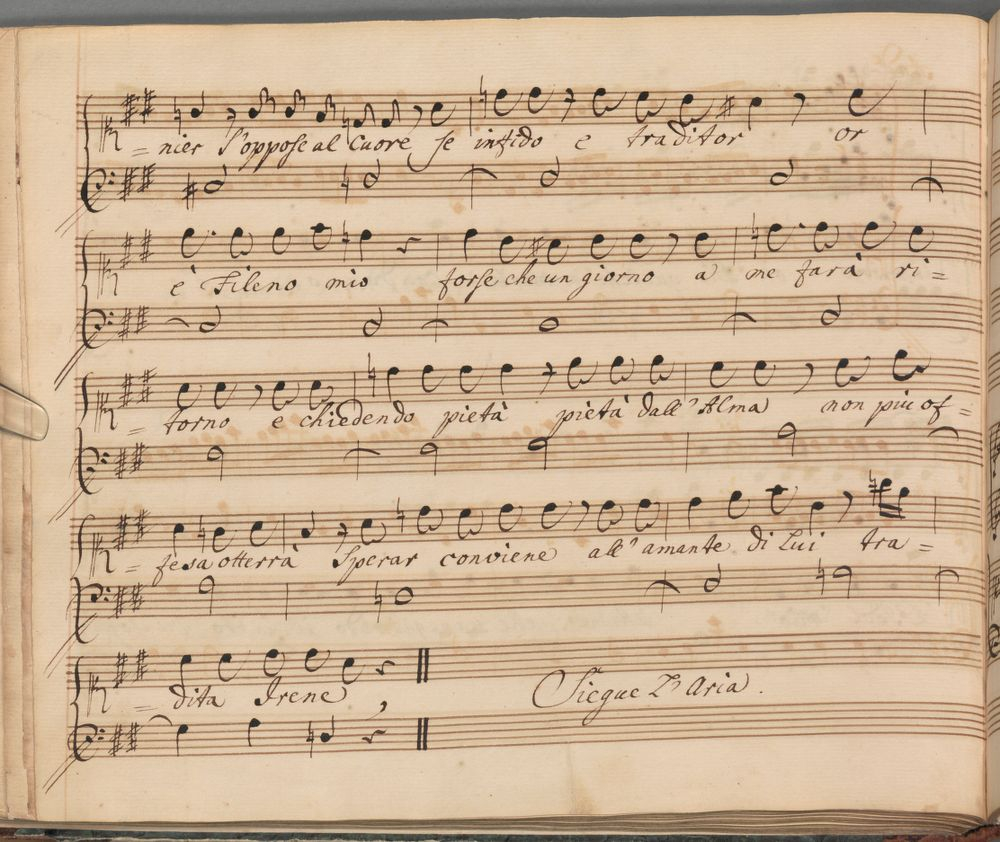 = nier s'oppose al Cuore se infido e traditor or
è Fileno mio forse che un giorno a me farà ri =
= torno e chiedendo pietà pietà dall' Alma non più of =
= fesa otterrà Sperar conviene all' amante di Lui tra =
= dita Irene,
Siegue L' Aria.